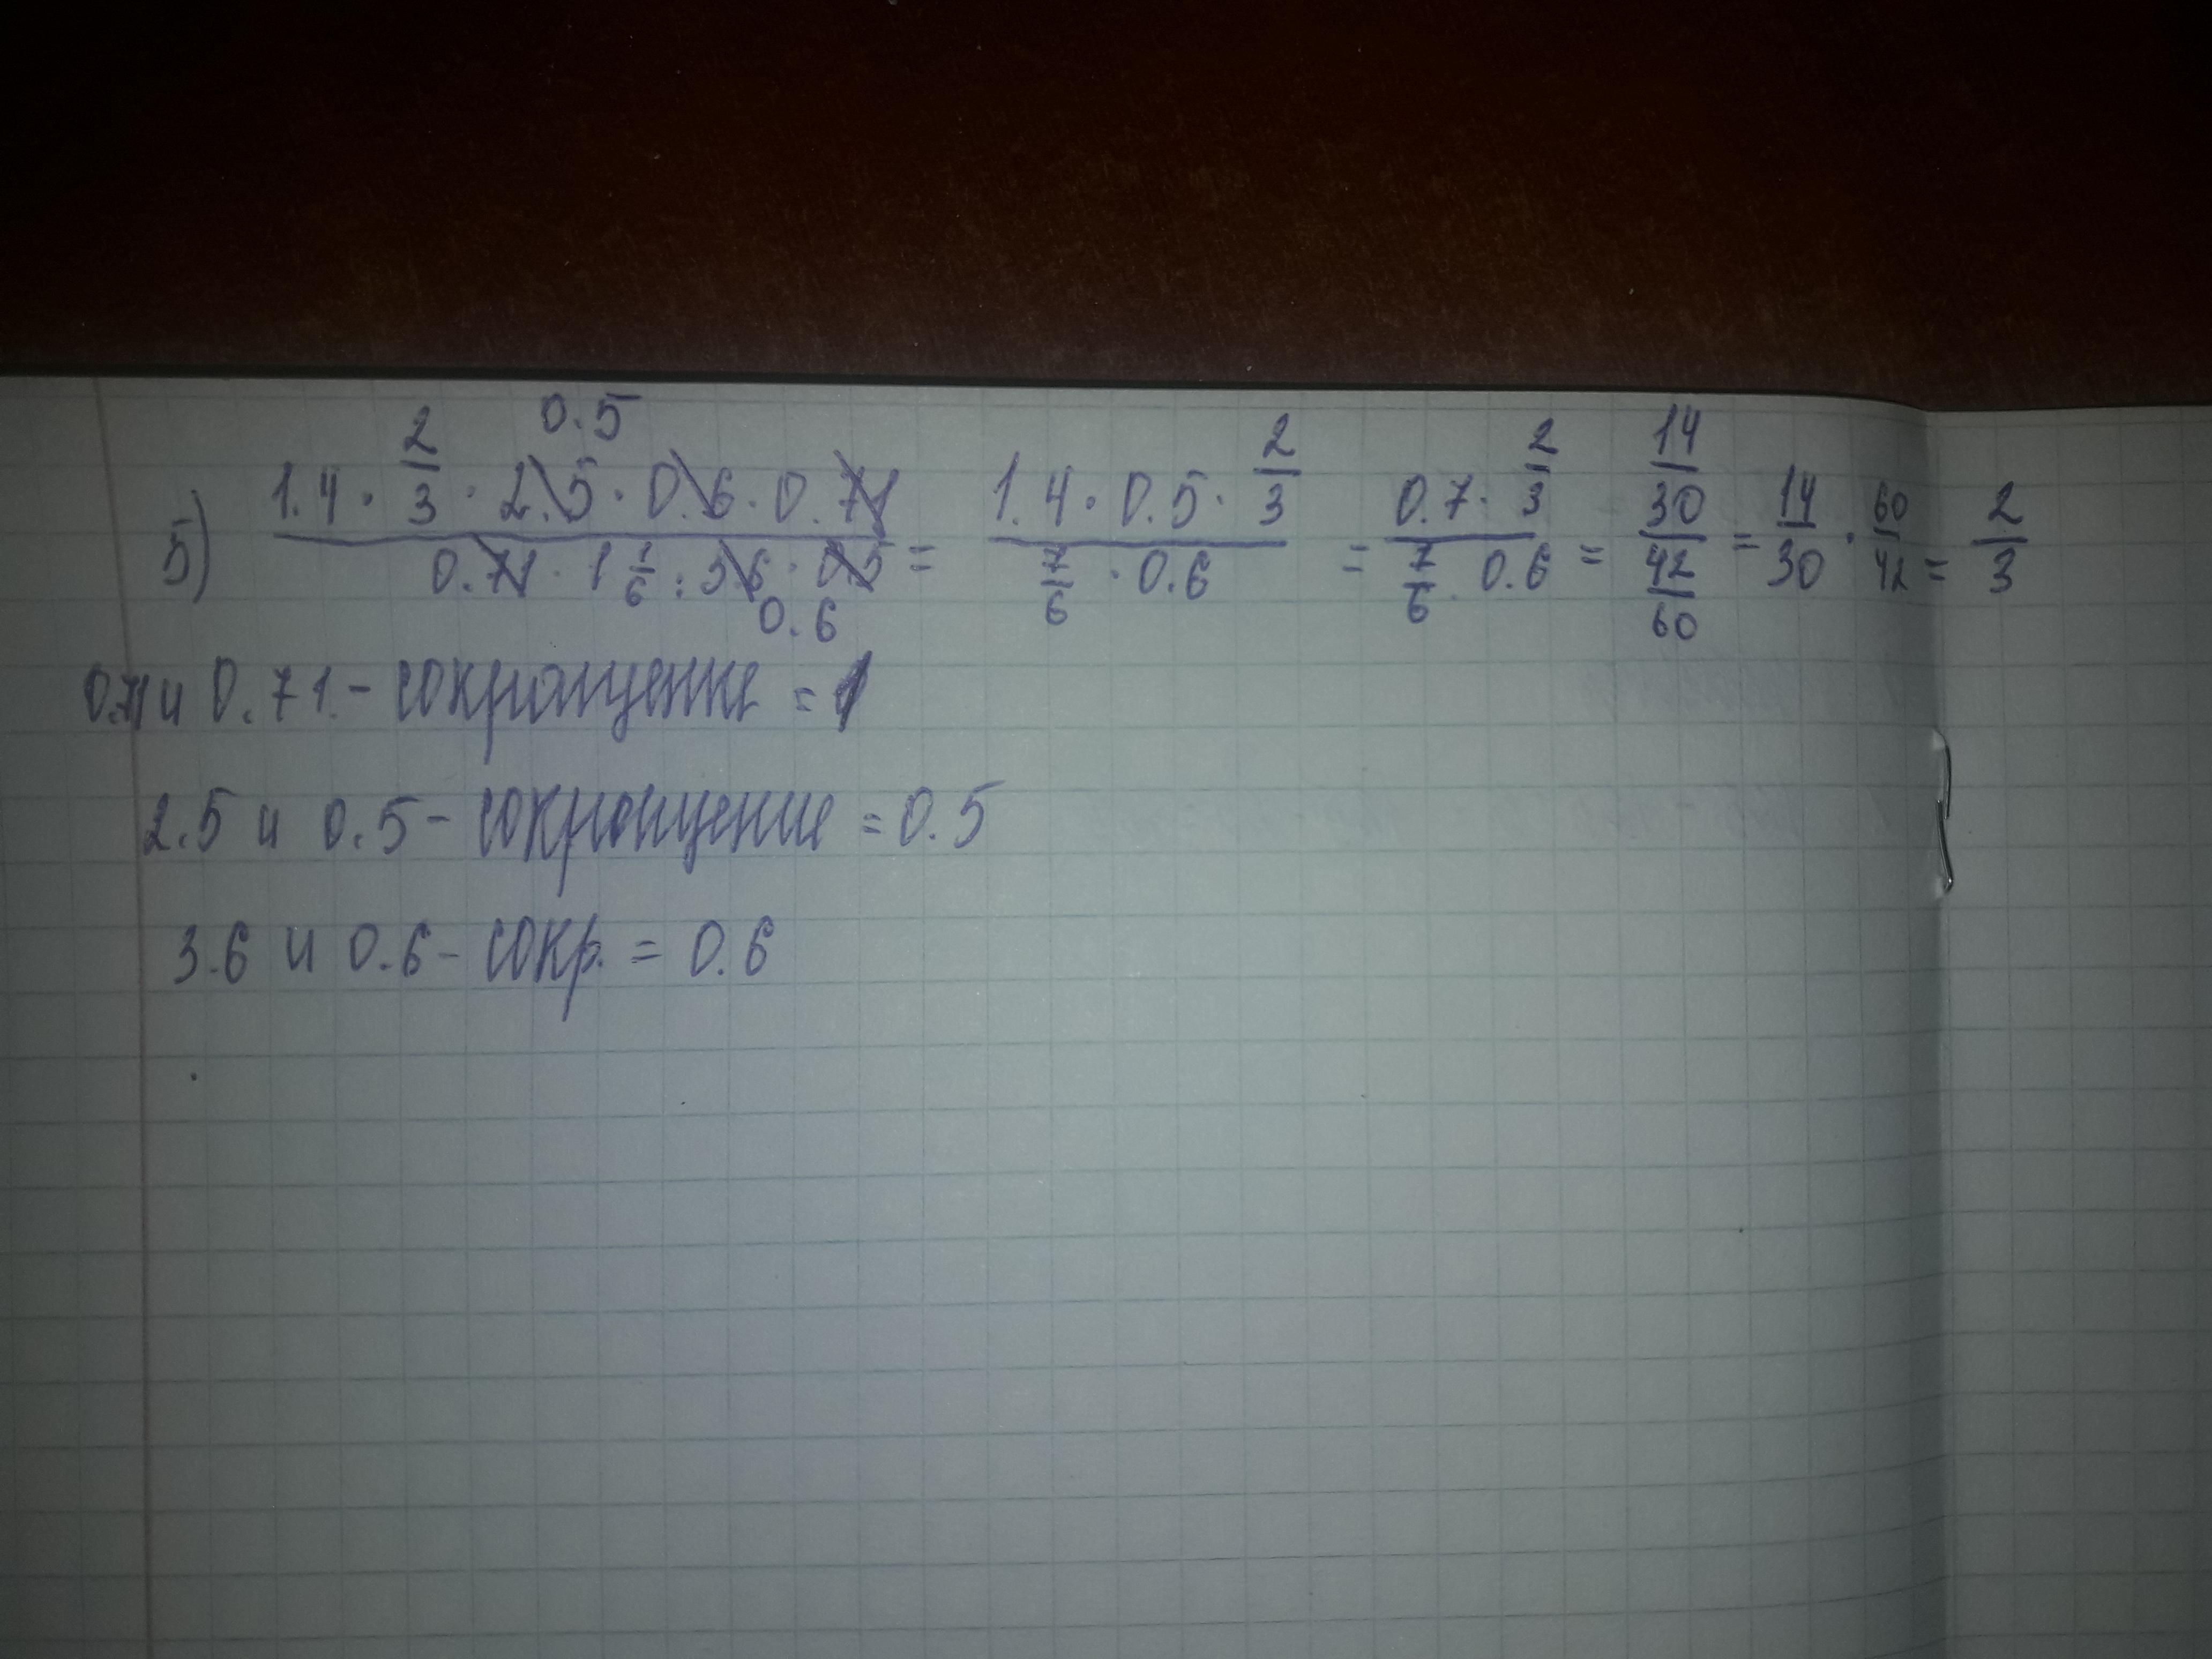 0.5
5) 1.4 · 2/3 · 2.5 · 0.6 · 0.71 / 0.71 · 1 1/6 : 3.6 · 0.5 = 1.4 · 0.5 · 2/3 / 7/6 · 0.6 = 0.7 · 2/3 / 7/6 · 0.6 = 14/30 / 42/60 = 14/30 · 60/42 = 2/3
0.6
0.71 и 0.71 - сокращение = 1
2.5 и 0.5 - сокращение = 0.5
3.6 и 0.6 - сокр. = 0.6